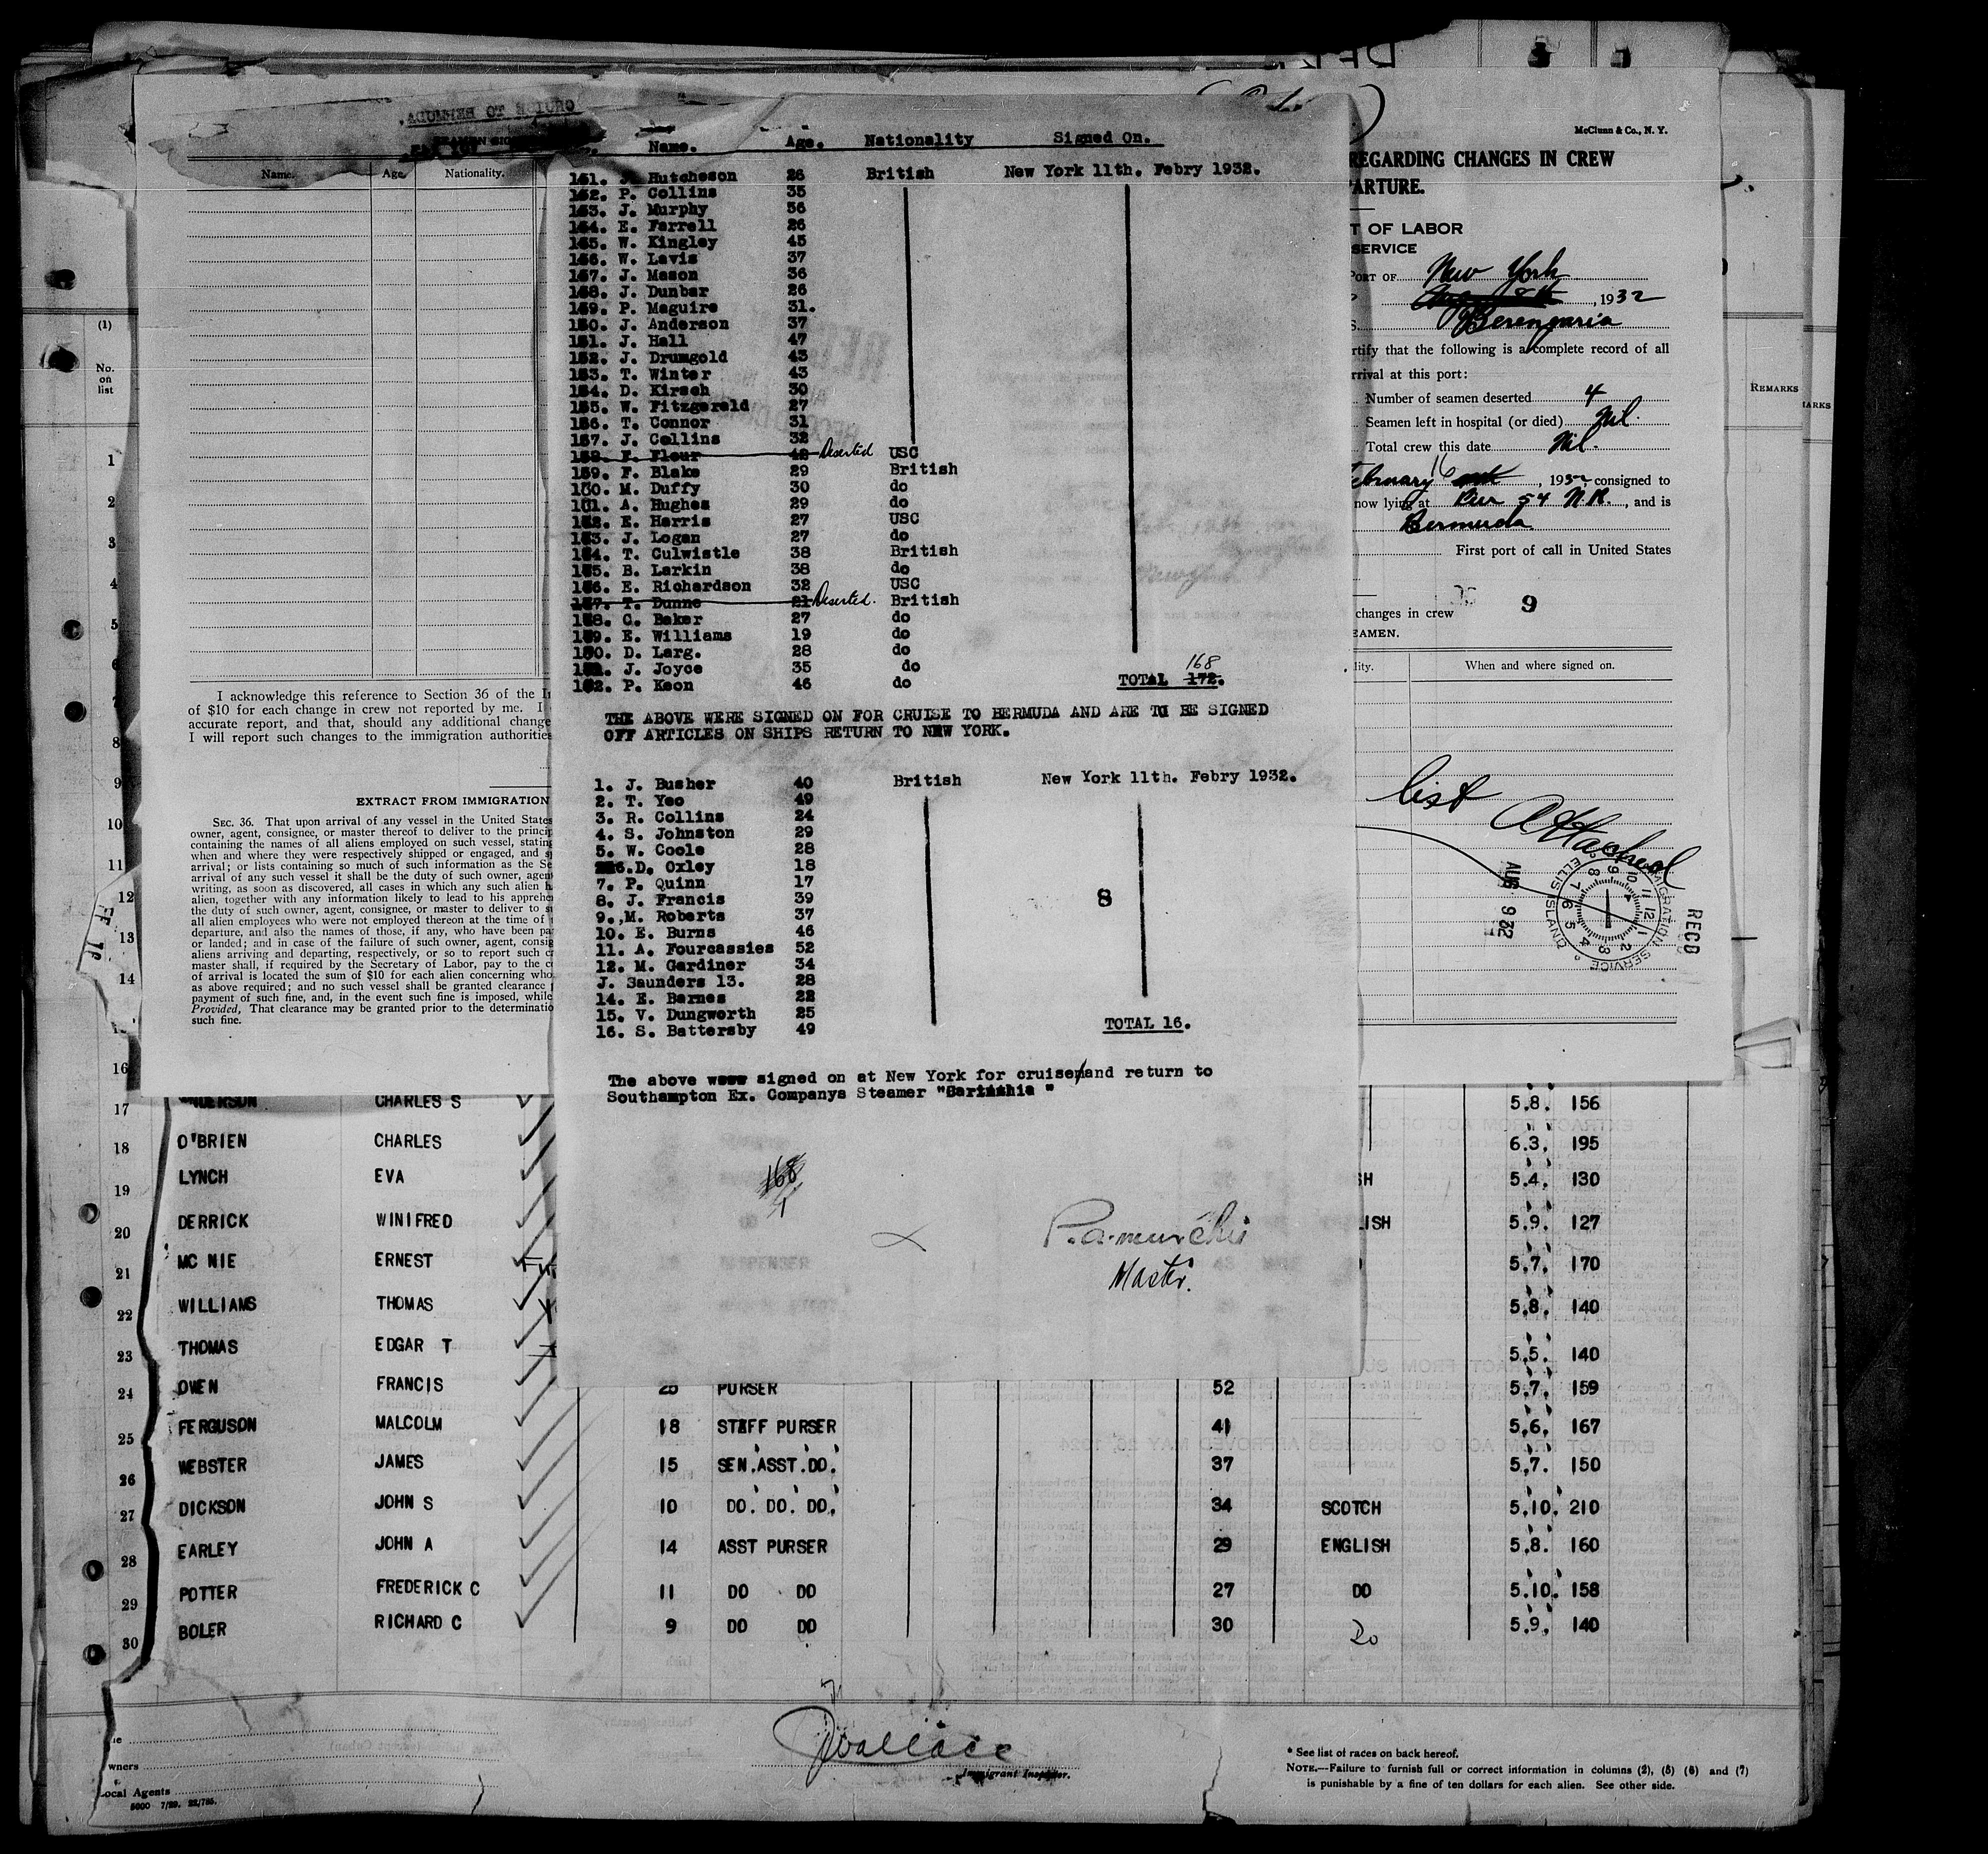 CRUISE TO BERMUDA.
Name. Age. Nationality.
(1)
No. on list
1
2
3
4
5
6
7
8
9
10
11
12
13
14
16
I acknowledge this reference to Section 36 of the
of $10 for each change in crew not reported by me. I
accurate report, and that, should any additional change
I will report such changes to the immigration authorities
EXTRACT FROM IMMIGRATION
SEC. 36. That upon arrival of any vessel in the United States
owner, agent, consignee, or master thereof to deliver to the
containing the names of all aliens employed on such vessel, stating
when and where they were respectively shipped or engaged, and
arrival; or lists containing so much of such information as the
arrival of any such vessel it shall be the duty of such owner,
writing, as soon as discovered, all cases in which any such alien
alien, together with any information likely to lead to his
the duty of such owner, agent, consignee, or master to deliver to
all alien employees who were not employed thereon at the time of
departure, and also the names of those, if any, who have been
or landed; and in case of the failure of such owner, agent,
aliens arriving and departing, respectively, or so to report such
master shall, if required by the Secretary of Labor, pay to the
of arrival is located the sum of $10 for each alien concerning
as above required; and no such vessel shall be granted clearance
payment of such fine, and, in the event such fine is imposed, while
Provided, That clearance may be granted prior to the
such fine.
Name. Age. Nationality Signed On.
Hutcheson 26 British New York 11th. Febry 1932.
P. Collins 35
J. Murphy 56
E. Farrell 26
W. Kingley 45
W. Lavis 37
J. Mason 36
J. Dunbar 26
P. Maguire 31.
J. Anderson 37
J. Hall 47
J. Drumgold 43
T. Winter 43
D. Kirsch 30
W. Fitzgerald 27
T. Connor 31
J. Collins 32
F. Fleur 42 Deserted USC
F. Blake 29 British
M. Duffy 30 do
A. Hughes 29 do
E. Harris 27 USC
J. Logan 27 do
T. Culwistle 38 British
B. Larkin 38 do
E. Richardson 32 USC
T. Dunne 21 Deserted. British
C. Baker 27 do
E. Williams 19 do
D. Larg. 28 do
J. Joyce 35 do
P. Keon 46 do
168
TOTAL 172.
THE ABOVE WERE SIGNED ON FOR CRUISE TO BERMUDA AND ARE TO BE SIGNED
OFF ARTICLES ON SHIPS RETURN TO NEW YORK.
1. J. Busher 40 British New York 11th. Febry 1932.
2. T. Yeo 49
3. R. Collins 24
4. S. Johnston 29
5. W. Coole 28
6. D. Oxley 18
7. P. Quinn 17
8. J. Francis 39
9., M. Roberts 37
10. E. Burns 46
11. A. Fourcassies 52
12. M. Gardiner 34
J. Saunders 13. 28
14. E. Barnes 22
15. V. Dungworth 25
16. S. Battersby 49
8
TOTAL 16.
The above were signed on at New York for cruise and return to
Southampton Ex. Companys Steamer "Carinthia "
168
Master.
McClunn & Co., N. Y.
REGARDING CHANGES IN CREW
T OF LABOR
SERVICE
PORT OF New York
, 1932
Berengaria
that the following is a complete record of all
arrival at this port:
Number of seamen deserted 4
Seamen left in hospital (or died) Nil.
Total crew this date Nil.
16 , 1932 consigned to
now lying at Pier 54 N.R. , and is
Bermuda
First port of call in United States
changes in crew 9
When and where signed on.
list Attached
IMMIGRATION SERVICE ELLIS ISLAND
RECD
REMARKS
17 ANDERSON CHARLES S 5.8. 156
18 O'BRIEN CHARLES 6.3. 195
19 LYNCH EVA 5.4. 130
20 DERRICK WINIFRED 5.9. 127
21 MC NIE ERNEST 5.7. 170
22 WILLIAMS THOMAS 5.8. 140
23 THOMAS EDGAR T 5.5. 140
24 OWEN FRANCIS 25 PURSER 52 5.7. 159
25 FERGUSON MALCOLM 18 STAFF PURSER 41 5.6. 167
26 WEBSTER JAMES 15 SEN.ASST.DO. 37 5.7. 150
27 DICKSON JOHN S 10 DO. DO. DO. 34 SCOTCH 5.10. 210
28 EARLEY JOHN A 14 ASST PURSER 29 ENGLISH 5.8. 160
29 POTTER FREDERICK C 11 DO DO 27 DO 5.10. 158
30 BOLER RICHARD C 9 DO DO 30 Do 5.9. 140
Wallace
Immigrant Inspector.
Local Agents
* See list of races on back hereof.
NOTE.—Failure to furnish full or correct information in columns (2), (5) (6) and (7)
is punishable by a fine of ten dollars for each alien. See other side.